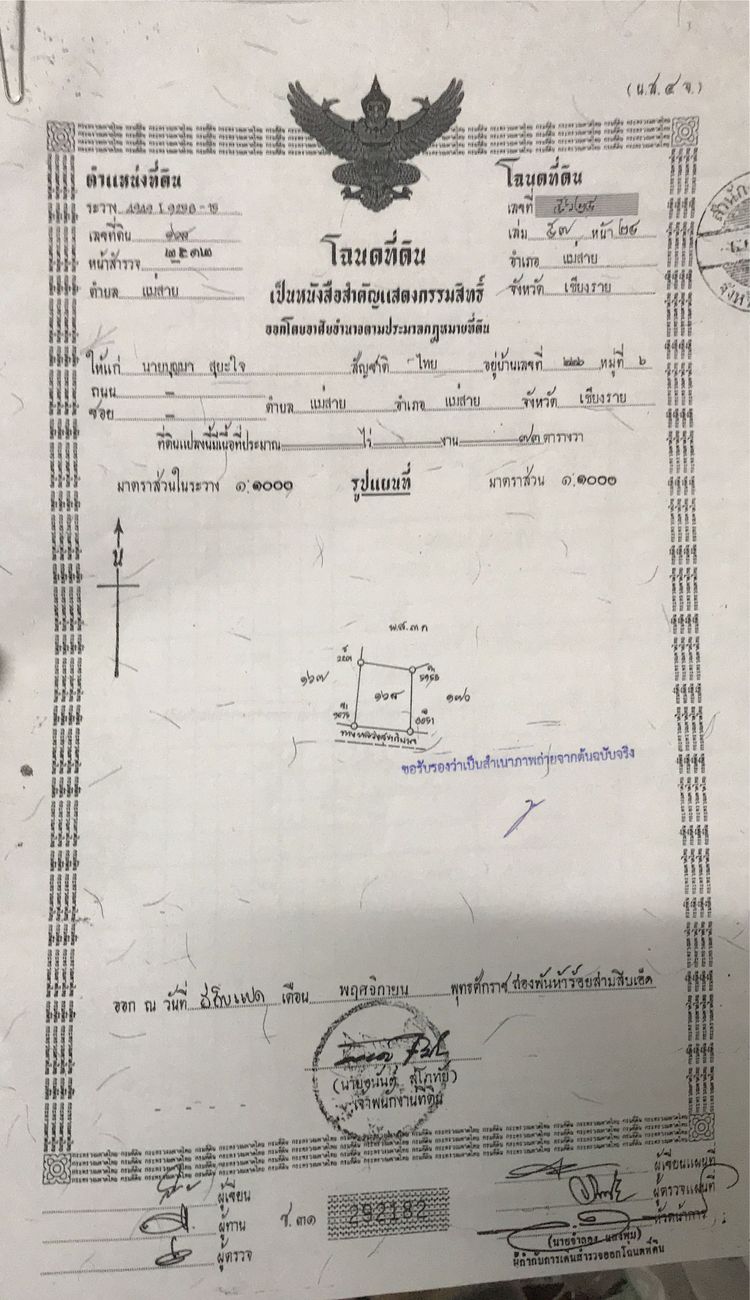 (น.ส. ๔ จ.)
ตำแหน่งที่ดิน
ระวาง 4949 I 9256-15
เลขที่ดิน ๑๖๘
หน้าสำรวจ ๒๕๓๒
ตำบล แม่สาย
โฉนดที่ดิน
เลขที่
เล่ม ๕๗ หน้า ๒๔
อำเภอ แม่สาย
จังหวัด เชียงราย
โฉนดที่ดิน
เป็นหนังสือสำคัญแสดงกรรมสิทธิ์
ออกโดยอาศัยอำนาจตามประมวลกฎหมายที่ดิน
ให้แก่ นายบุญมา สุยะใจ สัญชาติ ไทย อยู่บ้านเลขที่ ๒๒๖ หมู่ที่ ๖
ถนน –
ซอย – ตำบล แม่สาย อำเภอ แม่สาย จังหวัด เชียงราย
ที่ดินแปลงนี้มีเนื้อที่ประมาณ ไร่ งาน ๗๓ ตารางวา
มาตราส่วนในระวาง ๑:๑๐๐๐ รูปแผนที่ มาตราส่วน ๑:๑๐๐๐
น
น.ส.๓ ก
๑๖๗ ๑๖๘ ๑๗๐
ทางหลวง
ขอรับรองว่าเป็นสำเนาภาพถ่ายจากต้นฉบับจริง
ออก ณ วันที่ สิบแปด เดือน พฤศจิกายน พุทธศักราช สองพันห้าร้อยสามสิบเอ็ด
(นายอนันต์ สุโภทัย)
เจ้าพนักงานที่ดิน
ผู้เขียน
ผู้ทาน
ผู้ตรวจ
ช.๓๑
292182
ผู้เขียนแผนที่
ผู้ตรวจแผนที่
หัวหน้าการ
(นายจำลอง แสงพุ่ม)
ผู้กำกับการเดินสำรวจออกโฉนดที่ดิน